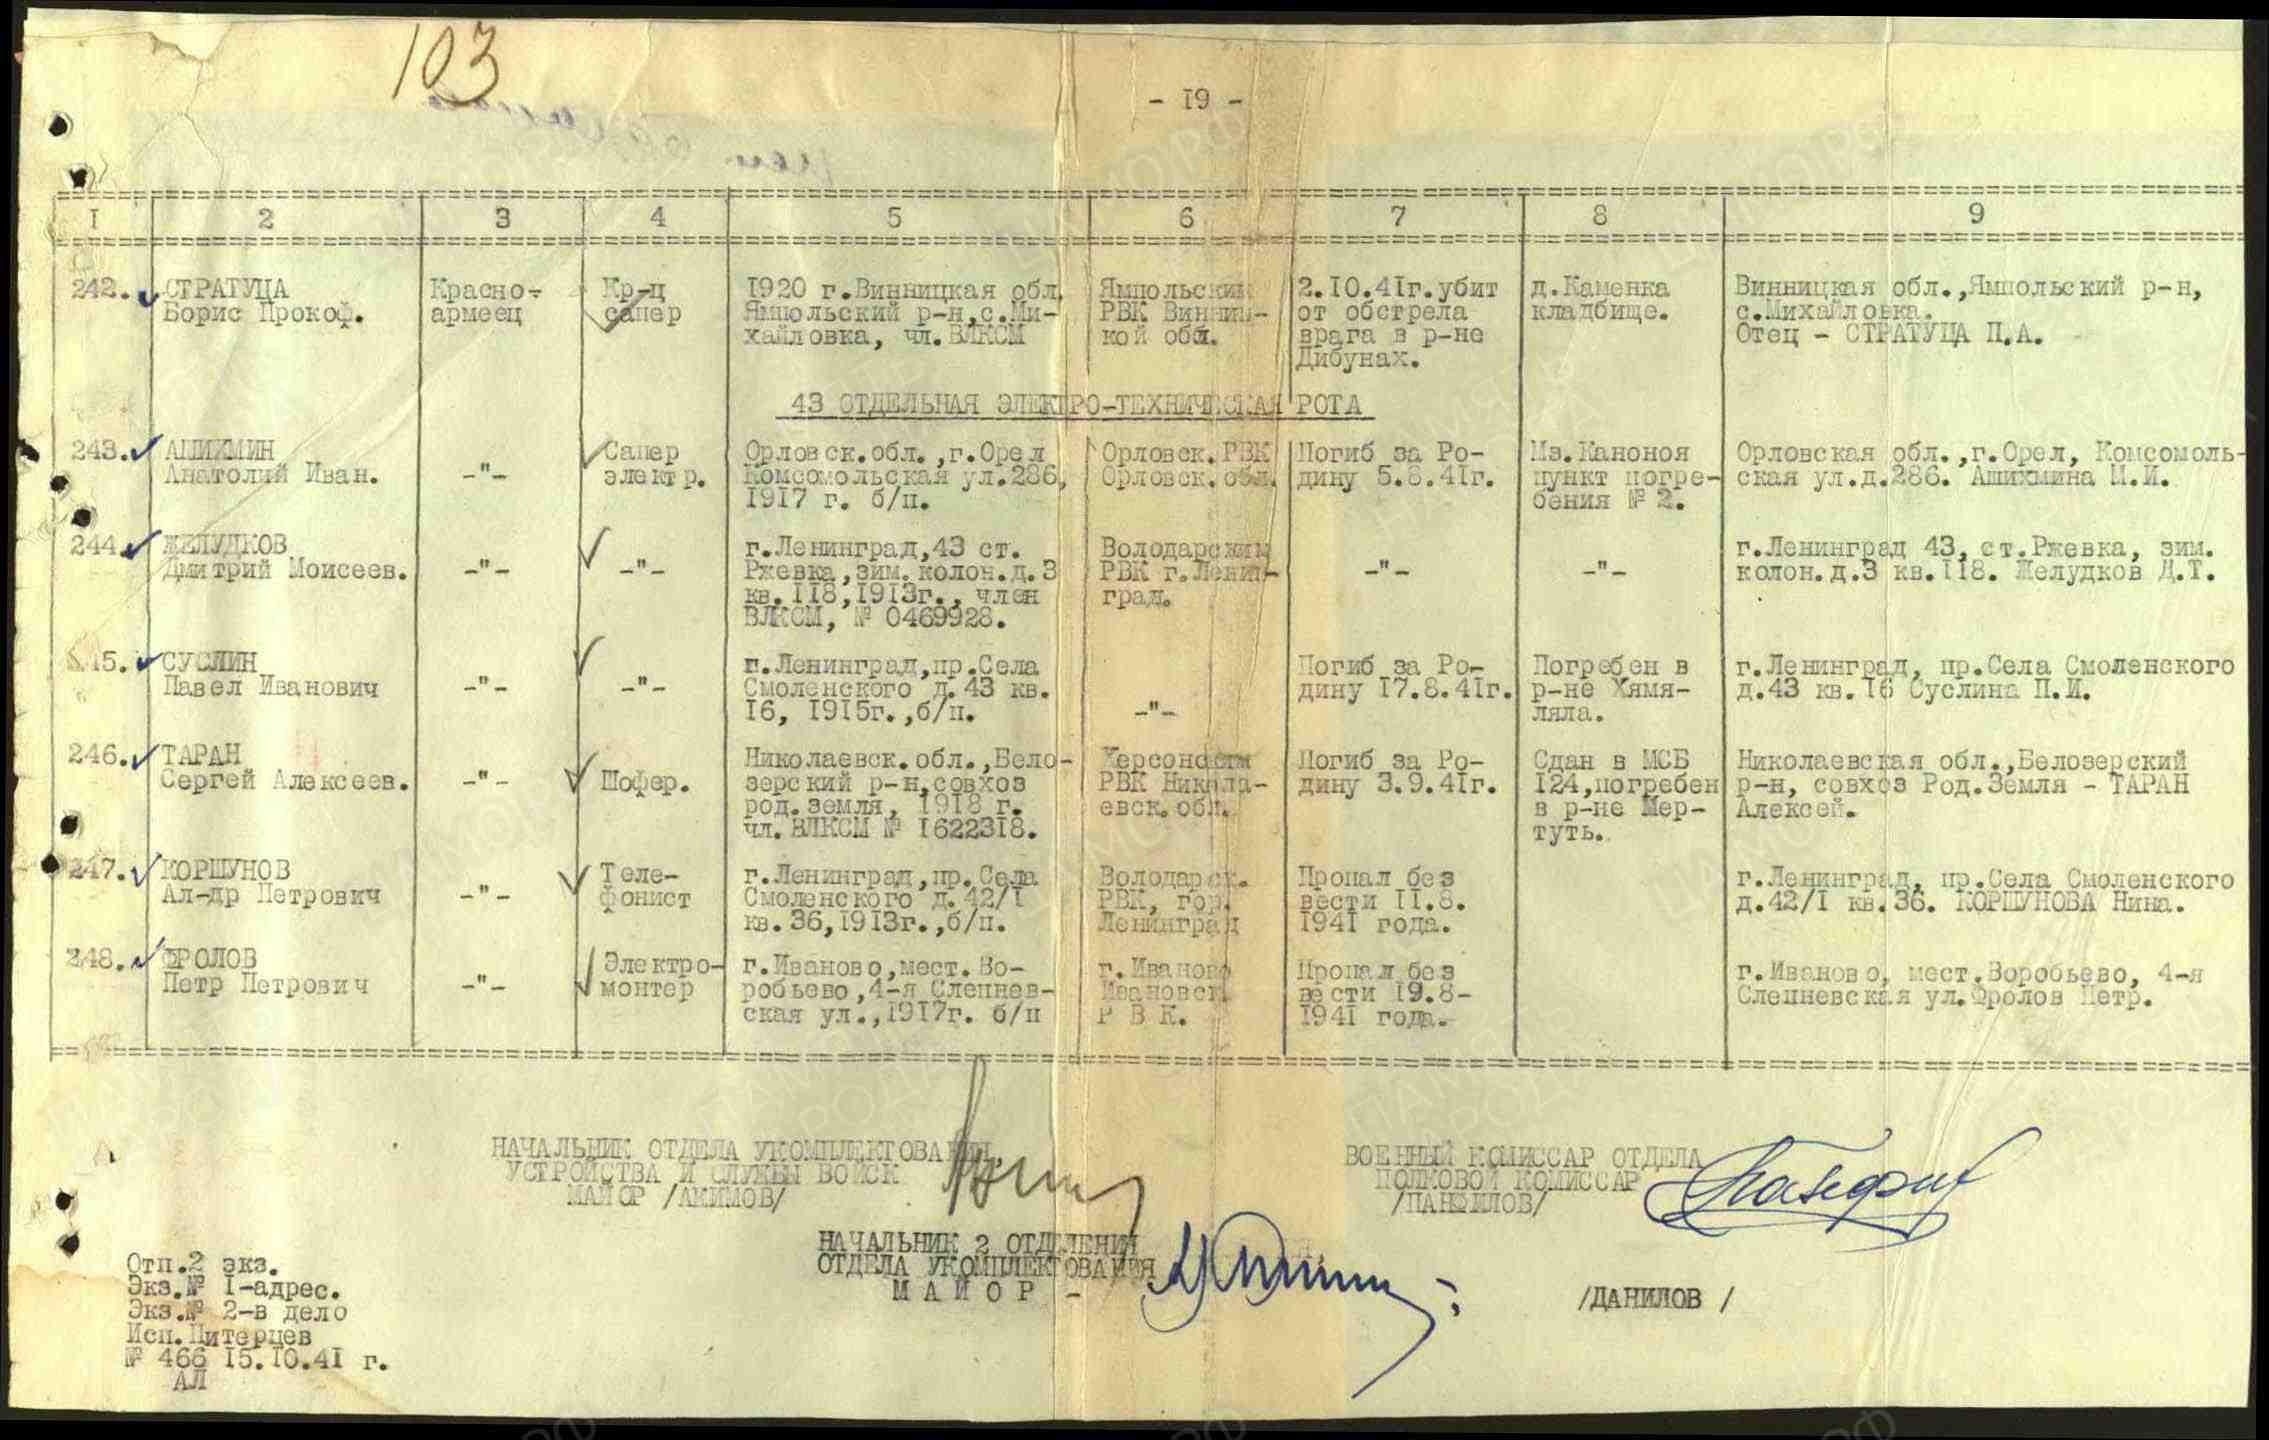 103
- 19 -
I 2 3 4 5 6 7 8 9
242. СТРАТУЦА
Борис Прокоф.
Красно-
армеец
Кр-ц
сапер
1920 г.Винницкая обл.
Ямпольский р-н,с.Ми-
хайловка, чл.ВЛКСМ
Ямпольский
РВК Винниц-
кой обл.
2.10.41г.убит
от обстрела
врага в р-не
Дибунах.
д.Каменка
кладбище.
Винницкая обл.,Ямпольский р-н,
с.Михайловка.
Отец - СТРАТУЦА П.А.
43 ОТДЕЛЬНАЯ ЭЛЕКТРО-ТЕХНИЧЕСКАЯ РОТА
243. АШИХМИН
Анатолий Иван.
-"-
Сапер
электр.
Орловск.обл.,г.Орел
Комсомольская ул.286,
1917 г. б/п.
Орловск.РВК
Орловск.обл.
Погиб за Ро-
дину 5.8.41г.
Мз.Каноноя
пункт погре-
бения № 2.
Орловская обл.,г.Орел, Комсомоль-
ская ул.д.286. Ашихмина М.И.
244. ЖЕЛУДКОВ
Дмитрий Моисеев.
-"-
-"-
г.Ленинград,43 ст.
Ржевка,зим.колон.д.3
кв.118,1913г., член
ВЛКСМ, № 0469928.
Володарским
РВК г.Ленин-
град.
-"-
-"-
г.Ленинград 43, ст.Ржевка, зим.
колон.д.3 кв.118. Желудков Д.Т.
45. СУСЛИН
Павел Иванович
-"-
-"-
г.Ленинград,пр.Села
Смоленского д.43 кв.
16, 1915г.,б/п.
-"-
Погиб за Ро-
дину 17.8.41г.
Погребен в
р-не Хямя-
ляла.
г.Ленинград, пр.Села Смоленского
д.43 кв.16 Суслина П.И.
246. ТАРАН
Сергей Алексеев.
-"-
Шофер.
Николаевск.обл.,Бело-
зерский р-н,совхоз
род.земля, 1918 г.
чл.ВЛКСМ № 1622318.
Херсонским
РВК Никола-
евск.обл.
Погиб за Ро-
дину 3.9.41г.
Сдан в МСБ
124,погребен
в р-не Мер-
туть.
Николаевская обл.,Белозерский
р-н, совхоз Род.Земля - ТАРАН
Алексей.
247. КОРШУНОВ
Ал-др Петрович
-"-
Теле-
фонист
г.Ленинград,пр.Села
Смоленского д.42/1
кв.36,1913г.,б/п.
Володарск.
РВК, гор.
Ленинград
Пропал без
вести 11.8.
1941 года.
г.Ленинград, пр.Села Смоленского
д.42/1 кв.36. КОРШУНОВА Нина.
248. ФРОЛОВ
Петр Петрович
-"-
Электро-
монтер
г.Иваново,мест.Во-
робьево,4-я Слепнев-
ская ул.,1917г. б/п
г.Иваново
Ивановск.
Р В К.
Пропал без
вести 19.8-
1941 года.
г.Иваново, мест.Воробьево, 4-я
Слепневская ул.Фролов Петр.
НАЧАЛЬНИК ОТДЕЛА УКОМПЛЕКТОВАНИЯ,
УСТРОЙСТВА И СЛУЖБЫ ВОЙСК
МАЙОР /АКИМОВ/
ВОЕННЫЙ КОМИССАР ОТДЕЛА
ПОЛКОВОЙ КОМИССАР
/ПАНФИЛОВ/
НАЧАЛЬНИК 2 ОТДЕЛЕНИЯ
ОТДЕЛА УКОМПЛЕКТОВАНИЯ
М А Й О Р -
/ДАНИЛОВ /
Отп.2 экз.
Экз.№ 1-адрес.
Экз.№ 2-в дело
Исп.Питерцев
№ 466 15.10.41 г.
АЛ